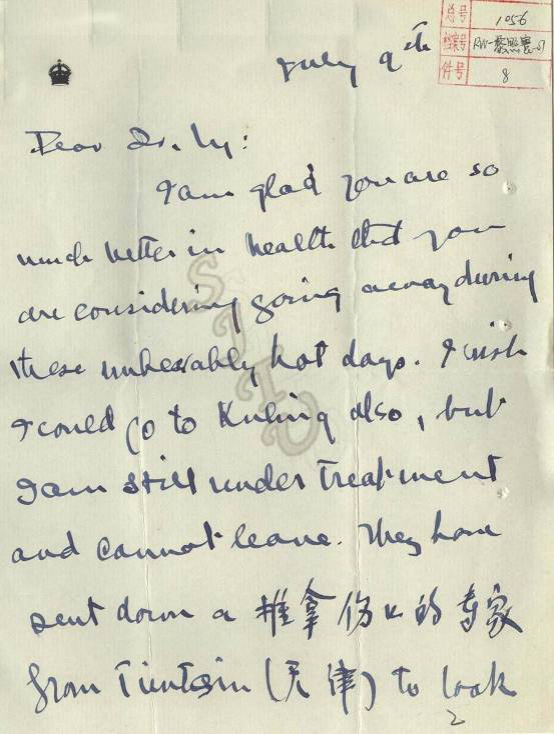 总号 1056
档案号 RW-黎照寰-67
件号 8
July 9th
Dear Dr. Ly:
I am glad you are so
much better in health that you
are considering going away during
these unbearably hot days. I wish
I could go to Kuling also, but
I am still under treatment
and cannot leave. They have
sent down a 推拿伤 的专家
from Tientsin (天津) to look
2
SJTU